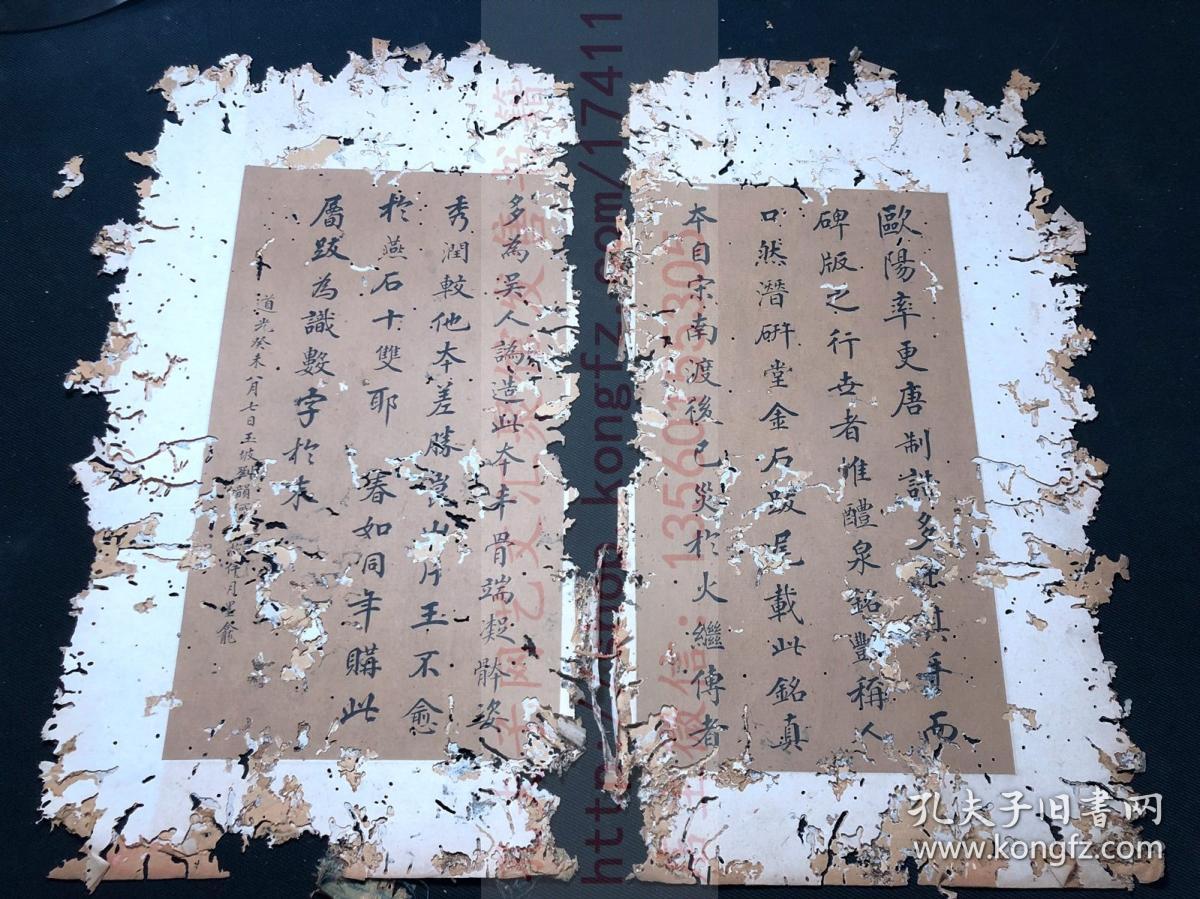 歐陽率更唐制誥多手而
碑版之行世者惟醴泉銘豐稱人
口然潛硏堂金石跋尾載此銘真
本自宋南渡後已災於火繼傳者
多為吴人譌造此本丰骨端凝骵姿
秀潤較他本差勝崑山片玉不愈
於燕石十雙耶 春如同年購此
屬跋為識數字於末
道光癸未八月七日玉坡劉韻月龕
孔夫子旧书网
www.kongfz.com
http://shop.kongfz.com/17411
微信：13560155305